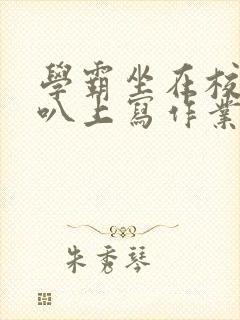 學霸坐在校
叭上寫作業
朱秀琴